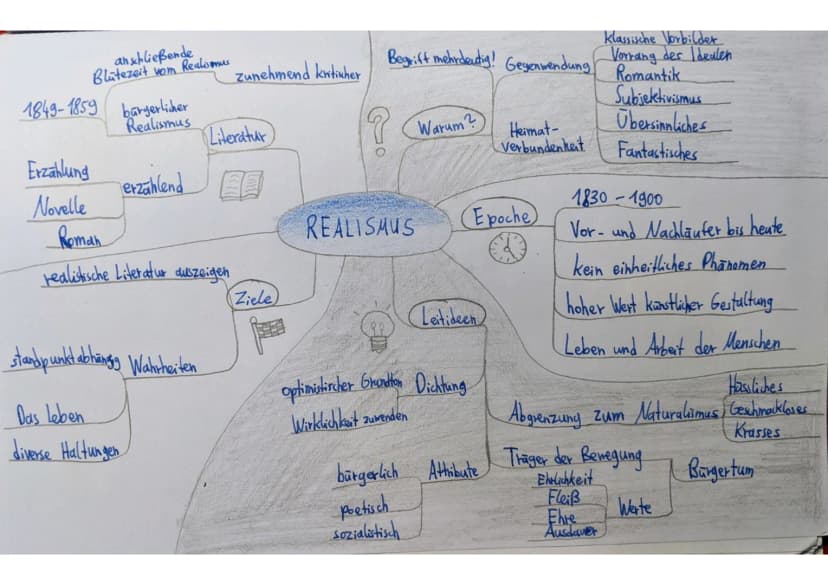 REALISMUS
Literatur
bürgerlicher
Realismus
1849-1859
anschließende
Blütezeit vom Realismus
zunehmend kritischer
erzählend
Erzählung
Novelle
Roman
Warum?
?
Begriff mehrdeutig!
Gegenwendung
klassische Vorbilder
Vorrang des Idealen
Romantik
Subjektivismus
Übersinnliches
Fantastisches
Heimat-
verbundenheit
Epoche
1830-1900
Vor- und Nachläufer bis heute
kein einheitliches Phänomen
hoher Wert künstlicher Gestaltung
Leben und Arbeit der Menschen
Leitideen
Dichtung
optimistischer Grundton
Wirklichkeit zuwenden
Abgrenzung zum Naturalismus
Hässliches
Geschmackloses
Krasses
Träger der Bewegung
Bürgertum
Werte
Ehrlichkeit
Fleiß
Ehre
Ausdauer
Attribute
bürgerlich
poetisch
sozialistisch
Ziele
realistische Literatur aufzeigen
Wahrheiten
standpunktabhängig
Das Leben
diverse Haltungen